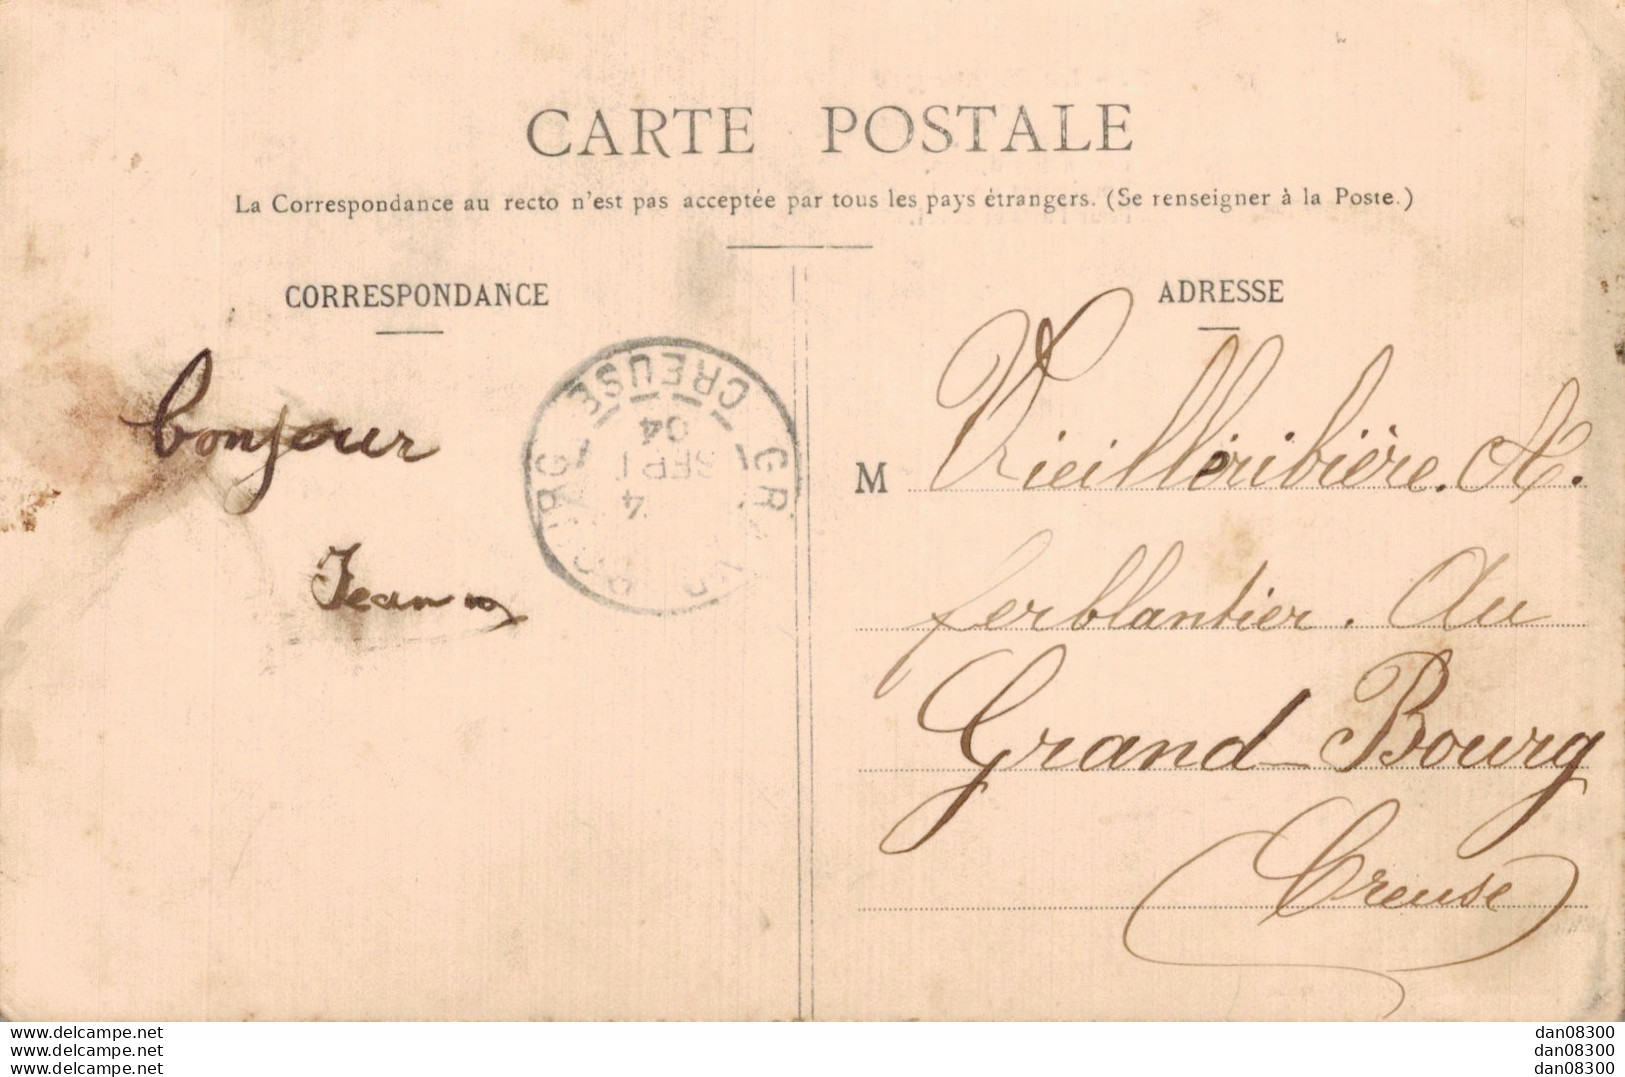 CARTE POSTALE
La Correspondance au recto n'est pas acceptée par tous les pays étrangers. (Se renseigner à la Poste.)
CORRESPONDANCE
bonjour
Jean
CREUSE
04
SEPT
4
ADRESSE
M Vieilleribière. A.
ferblantier. Au
Grand-Bourg
Creuse
www.delcampe.net
www.delcampe.net
www.delcampe.net
dan08300
dan08300
dan08300